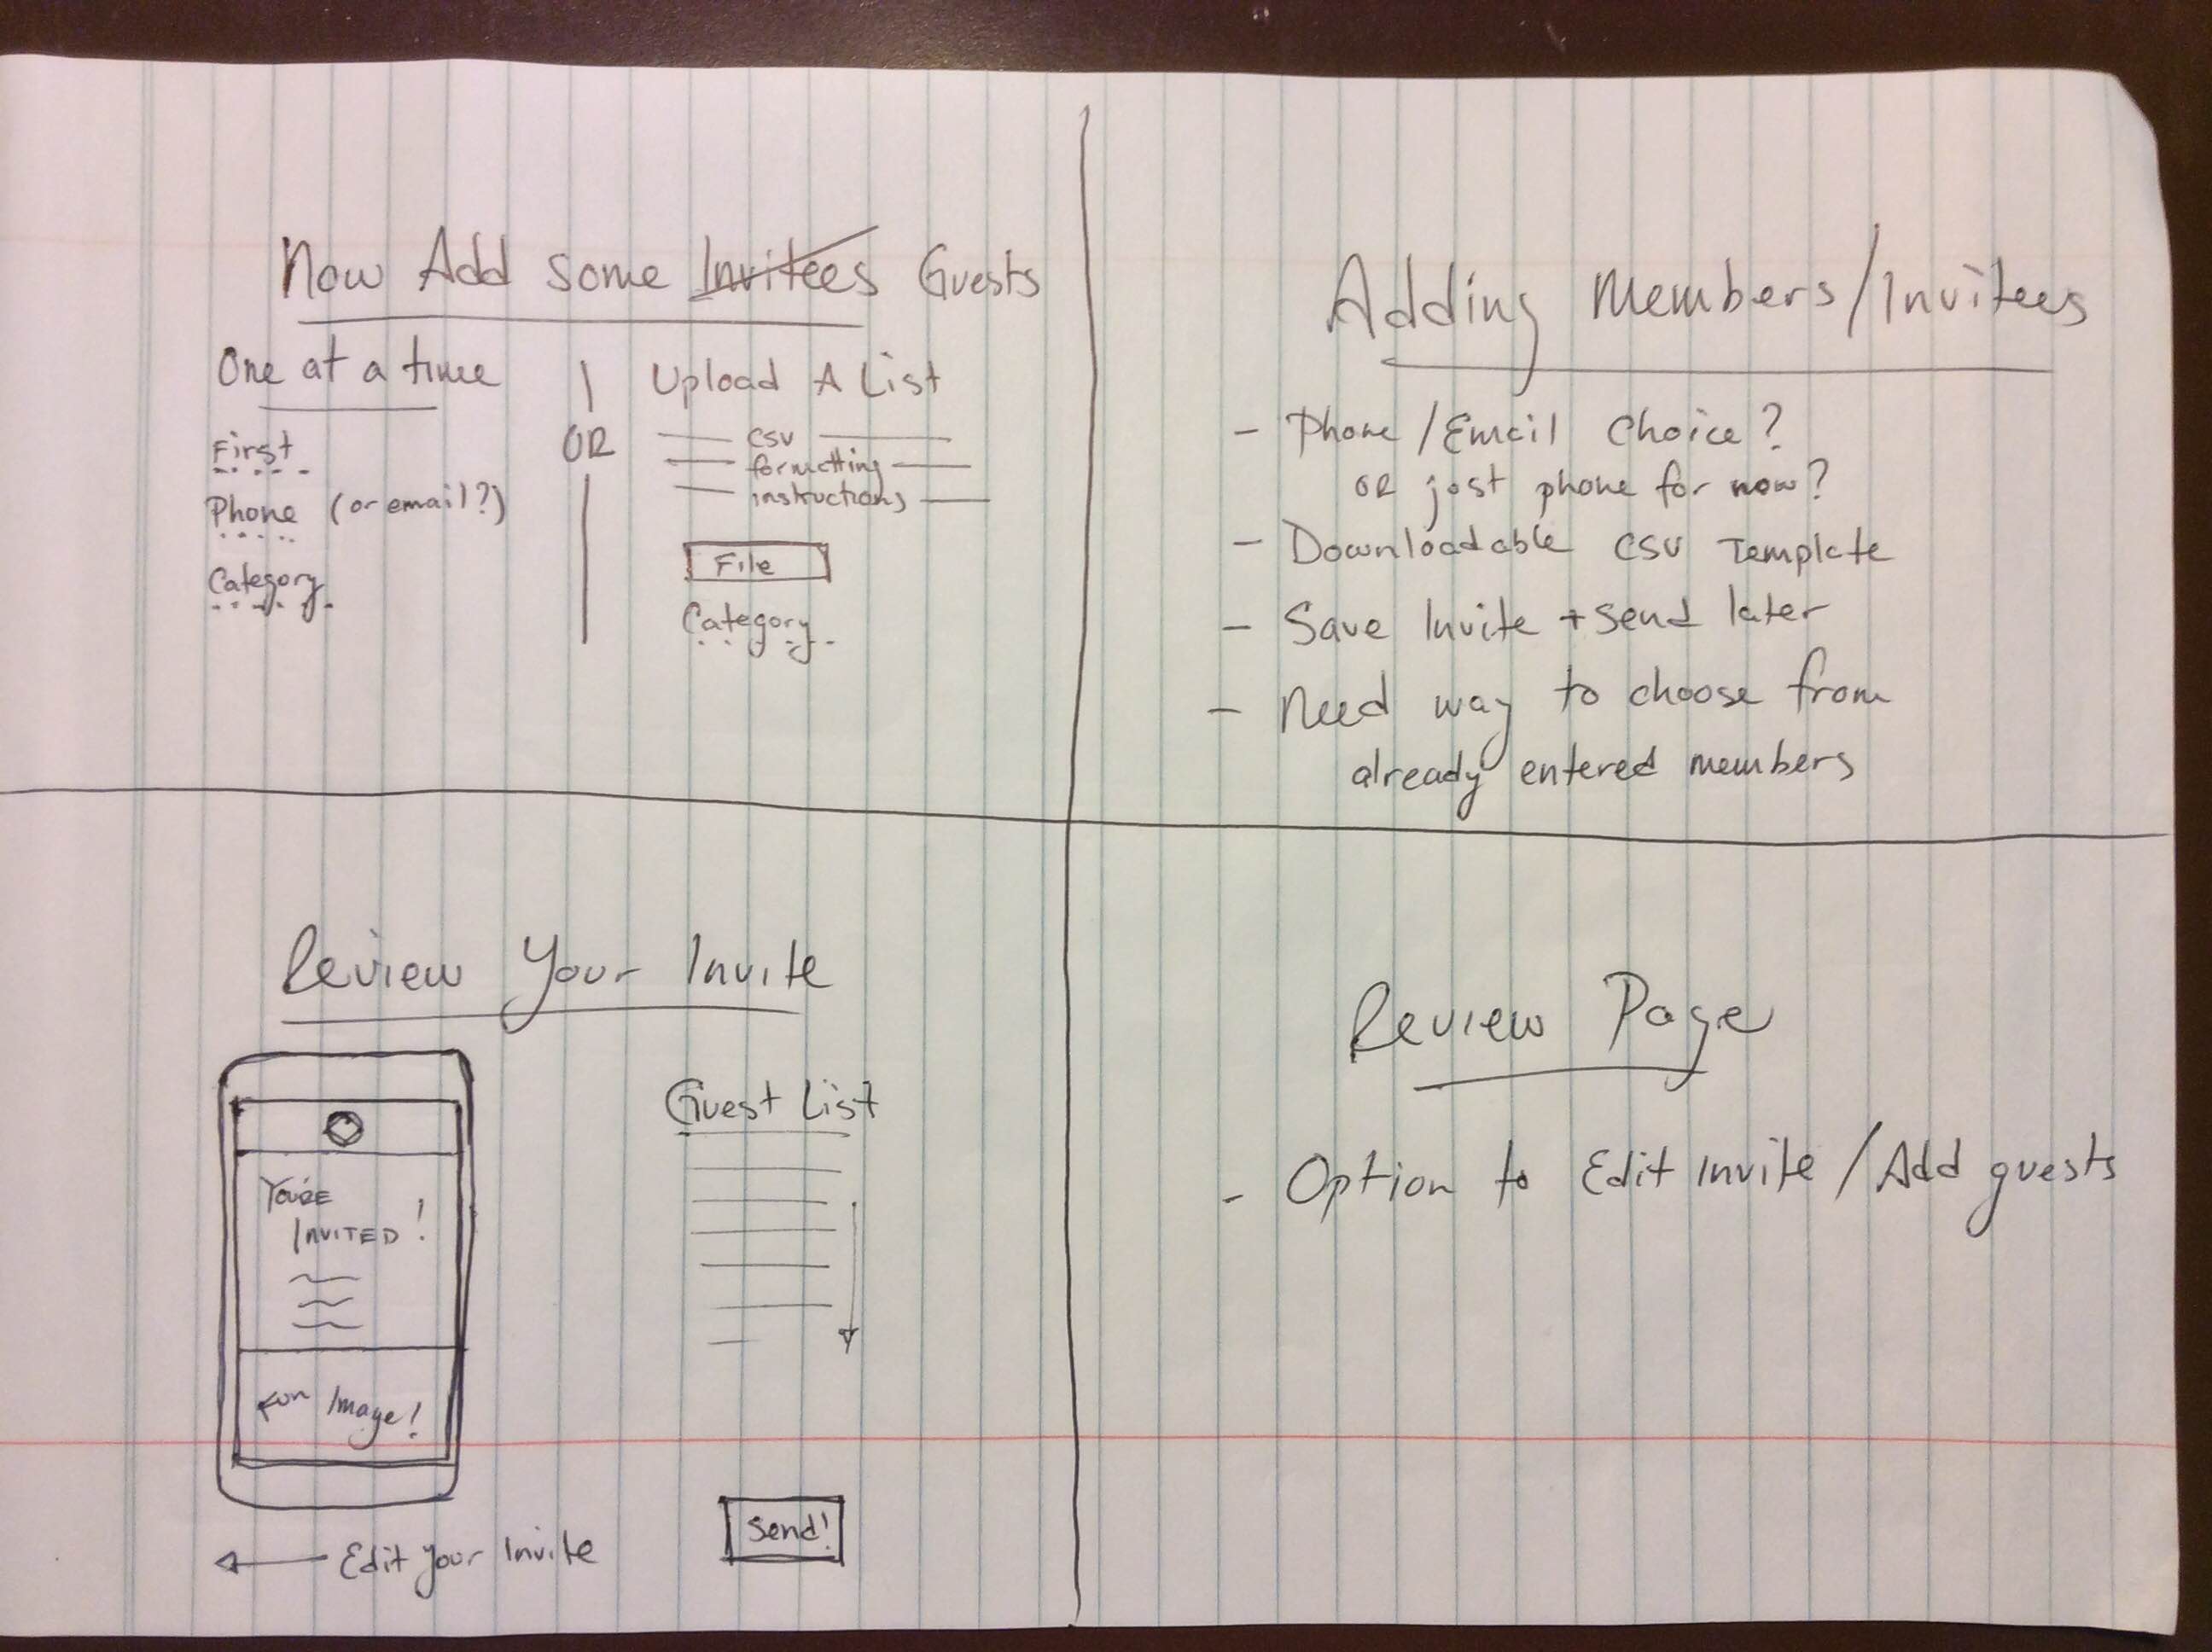 Now Add some Invitees Guests
One at a time
First
Phone (or email?)
Category
OR
Upload A List
CSV
formatting
instructions
File
Category
Adding Members/Invitees
- Phone/Email Choice?
OR just phone for now?
- Downloadable CSV Template
- Save Invite + send later
- Need way to choose from
already entered members
Review Your Invite
YOU'RE
INVITED!
Fun Image!
Guest List
Edit your Invite
Send!
Review Page
- Option to Edit Invite/Add guests